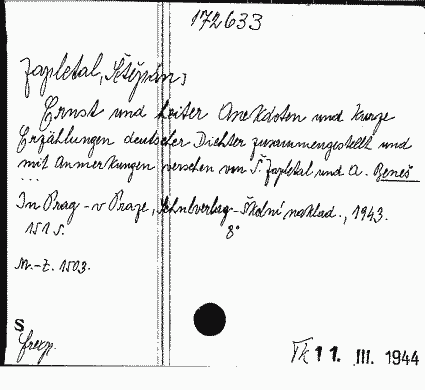 172633
Zapletal, Štěpán,
Ernst und heiter Anekdoten und kurze
Erzählungen deutscher Dichter zusammengestellt und
mit Anmerkungen versehen von Š. Zapletal und A. Beneš
...
In Prag - v Praze, Schulverlag - Školní naklad., 1943.
151 s. 8°
Nr.-Z. 1503.
S
11. III. 1944